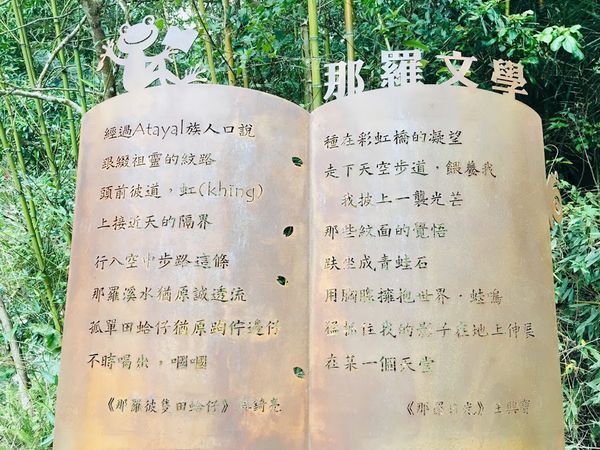 那羅文學
經過Atayal族人口說
跟綴祖靈的紋路
頭前彼道，虹(khing)
上接近天的隔界
行入空中步路這條
那羅溪水猶原誠透流
孤單田蛤仔猶原跔佇邊仔
不時喝出，嘓嘓
《那羅彼隻田蛤仔》 綺亮
種在彩虹橋的凝望
走下天空步道，餵養我
我披上一襲光芒
那些紋面的覺悟
趺坐成青蛙石
用胸膛擁抱世界．蛙鳴
猛抓住我的影子在地上伸展
在某一個天堂
《那羅 》 王興寶